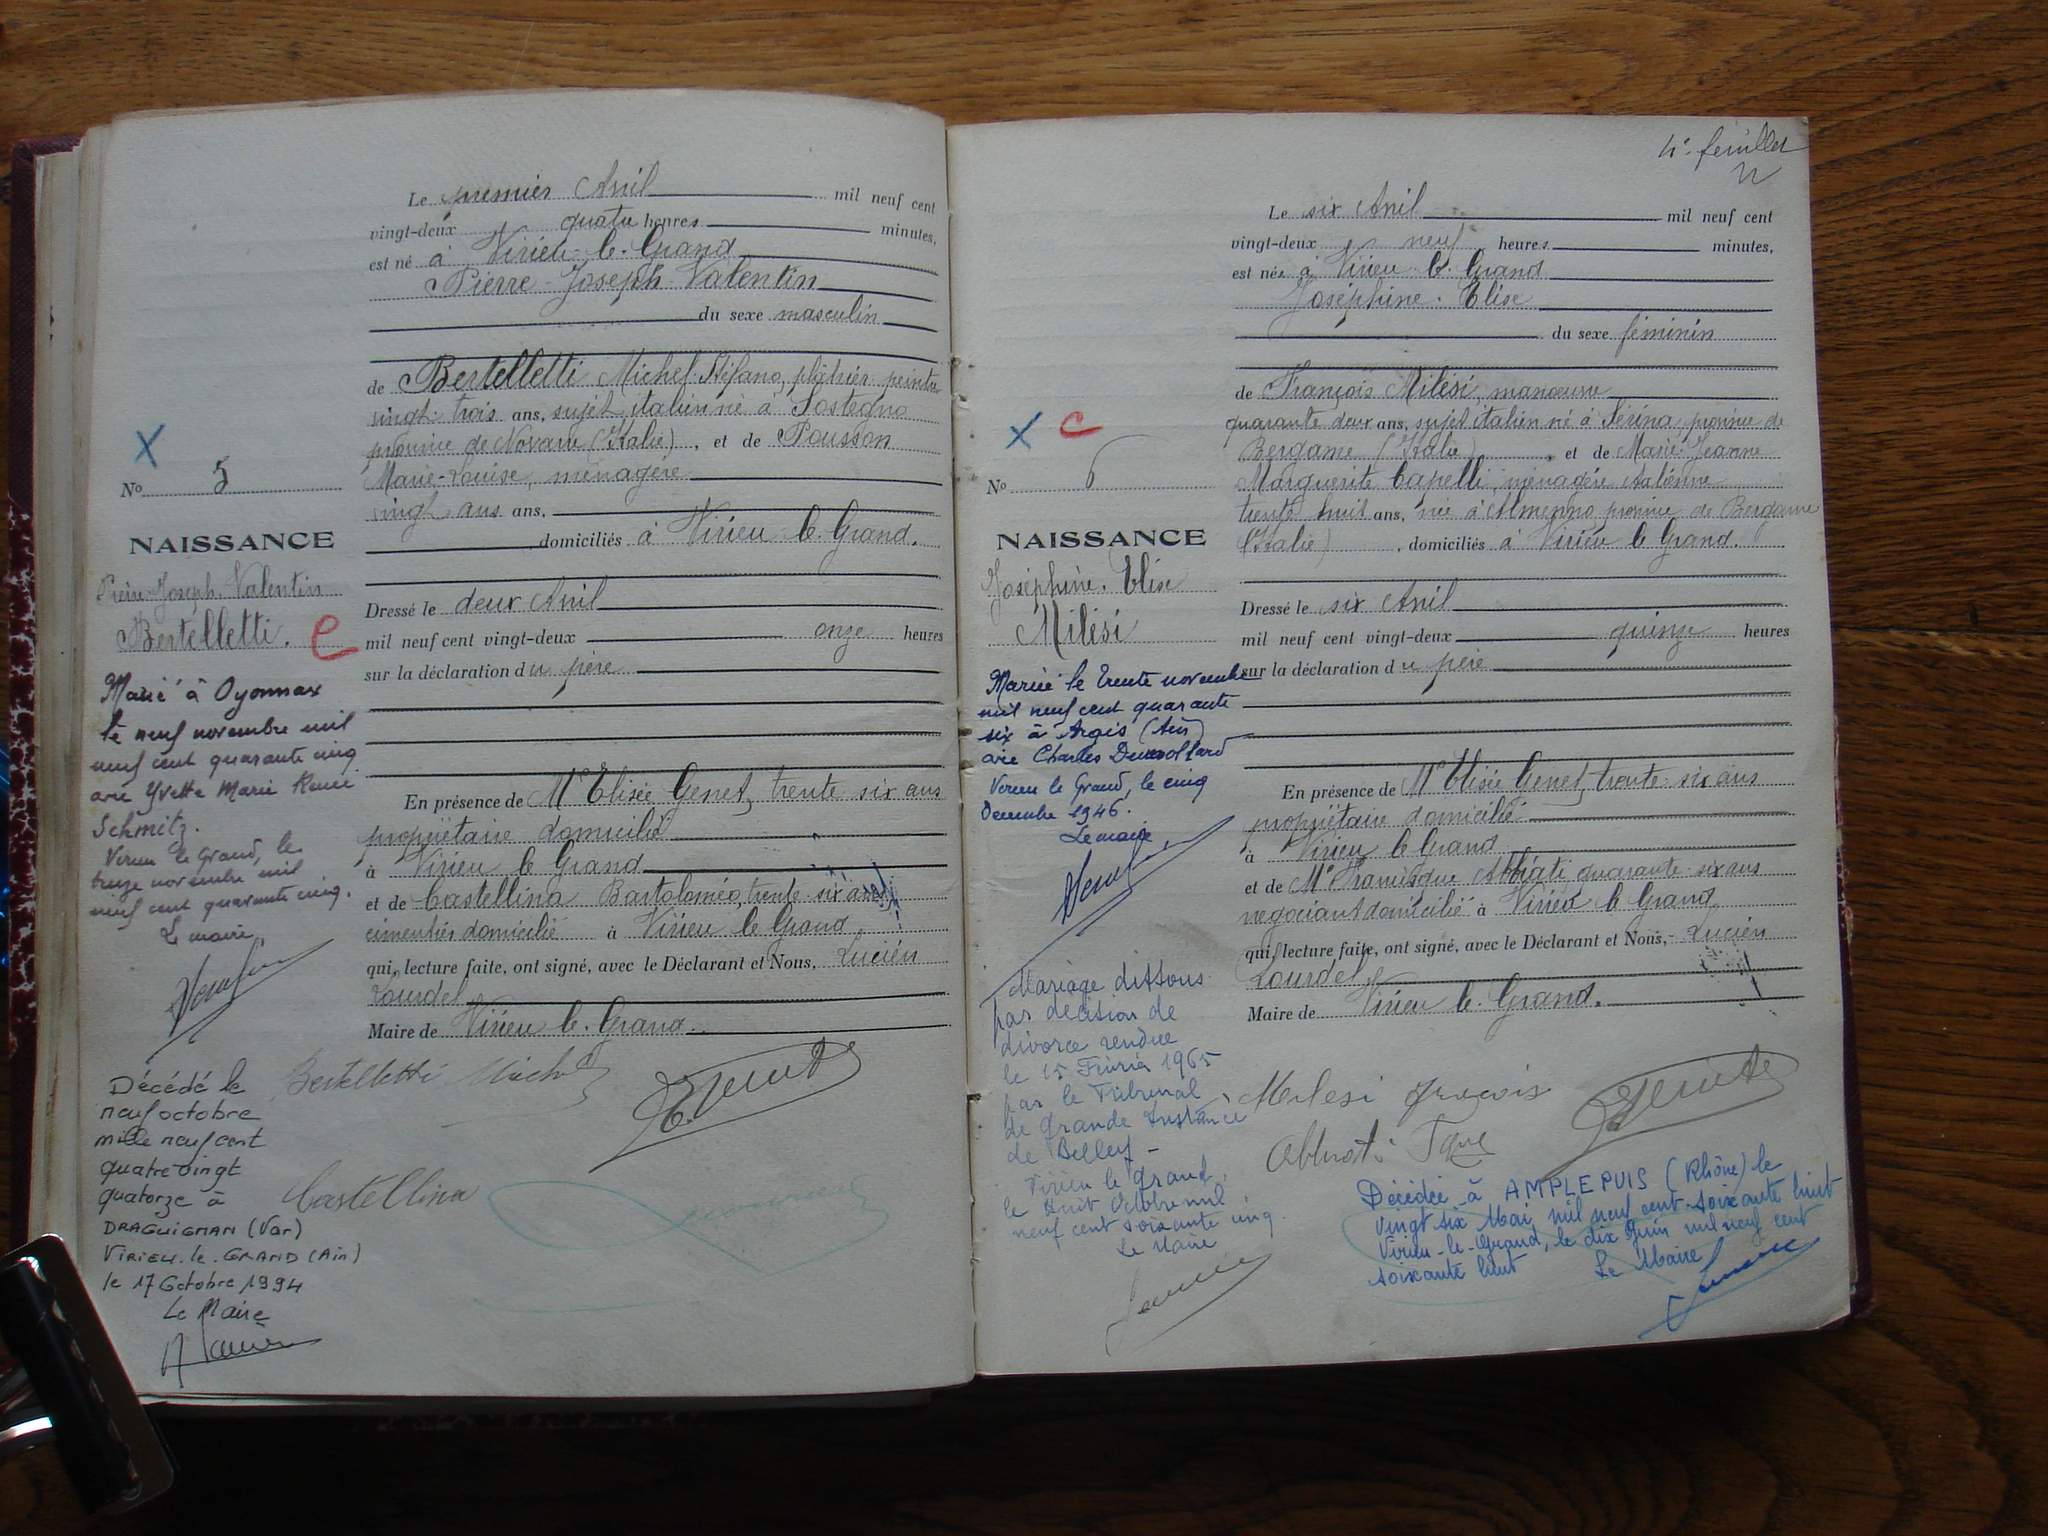 Le premier Avril mil neuf cent
vingt-deux quatre heures minutes,
est né à Virieu-le-Grand
Pierre-Joseph-Valentin
du sexe masculin
de Bertelletti Michel-Stéfano, plâtrier peintre
vingt-trois ans, sujet italien né à Sostegno
province de Novare (Italie), et de Pousson
Marie-Louise, ménagère
vingt ans ans,
domiciliés à Virieu-le-Grand.
Dressé le deux Avril
mil neuf cent vingt-deux onze heures
sur la déclaration du père
En présence de Mr Elisée Genet, trente-six ans
propriétaire domicilié
à Virieu le Grand
et de Castellina Bartoloméo, trente-six ans
cimentier domicilié à Virieu le Grand,
qui, lecture faite, ont signé, avec le Déclarant et Nous, Lucien
Lourdel
Maire de Virieu-le-Grand.
Bertelletti Michel
E. Genet
Castellina
X
No 5
NAISSANCE
Pierre-Joseph-Valentin
Bertelletti.
e
Marié à Oyonnax
le neuf novembre mil
neuf cent quarante cinq
avec Yvette Marie Renée
Schmitz.
Virieu le Grand, le
treize novembre mil
neuf cent quarante cinq.
Le maire,
Décédé le
neuf octobre
mille neuf cent
quatre vingt
quatorze à
DRAGUIGNAN (Var)
VIRIEU-le-GRAND (Ain)
le 17 Octobre 1994
Le Maire
4e feuillet
Le six Avril mil neuf cent
vingt-deux neuf heures minutes,
est née à Virieu-le-Grand
Joséphine-Elise
du sexe féminin
de François Milési, manœuvre
quarante deux ans, sujet italien né à Sérina province de
Bergame (Italie), et de Marie-Jeanne
Marguerite Capelli, ménagère italienne
trente huit ans, née à Almenno province de Bergame
(Italie), domiciliés à Virieu le Grand.
Dressé le six Avril
mil neuf cent vingt-deux quinze heures
sur la déclaration du père
En présence de Mr Elisée Genet, trente-six ans
propriétaire domicilié
à Virieu le Grand
et de Mr Francisque Abbiati quarante-six ans
négociant domicilié à Virieu le Grand
qui, lecture faite, ont signé, avec le Déclarant et Nous, Lucien
Lourdel
Maire de Virieu-le-Grand.
Milesi
E. Genet
X C
No 6
NAISSANCE
Joséphine-Elise
Milési
Mariée le trente novembre
mil neuf cent quarante
six à Argis (Ain)
avec Charles Dumollard
Virieu le Grand, le cinq
Décembre 1946.
Le maire
Mariage dissous
par décision de
divorce rendue
le 15 Février 1965
par le Tribunal
de Grande Instance
de Belley-
Virieu le Grand,
le huit Octobre mil
neuf cent soixante cinq
Le Maire
Décédée à AMPLEPUIS (Rhône) le
vingt six Mai mil neuf cent soixante huit
Virieu-le-Grand, le dix Juin mil neuf cent
soixante huit Le Maire